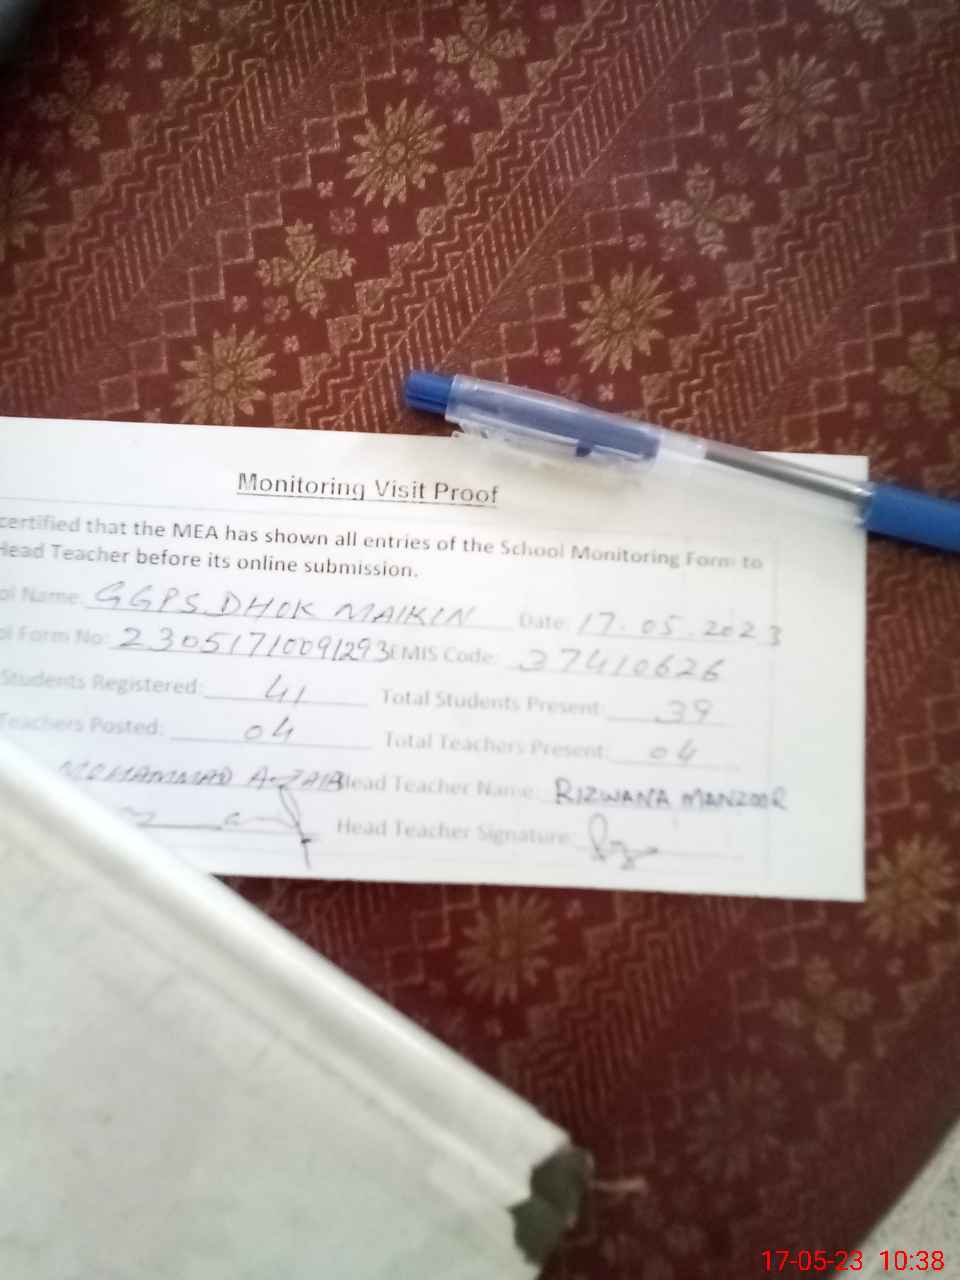 Monitoring Visit Proof
certified that the MEA has shown all entries of the School Monitoring Form to
Head Teacher before its online submission.
ol Name: GGPS DHOK MAIKIN Date: 17.05.2023
ol Form No: 23051710091293 EMIS Code: 37410626
Students Registered: 41 Total Students Present: 39
Teachers Posted: 04 Total Teachers Present: 04
MOHAMMAD AZAIB Head Teacher Name: RIZWANA MANZOOR
Head Teacher Signature:
17-05-23 10:38